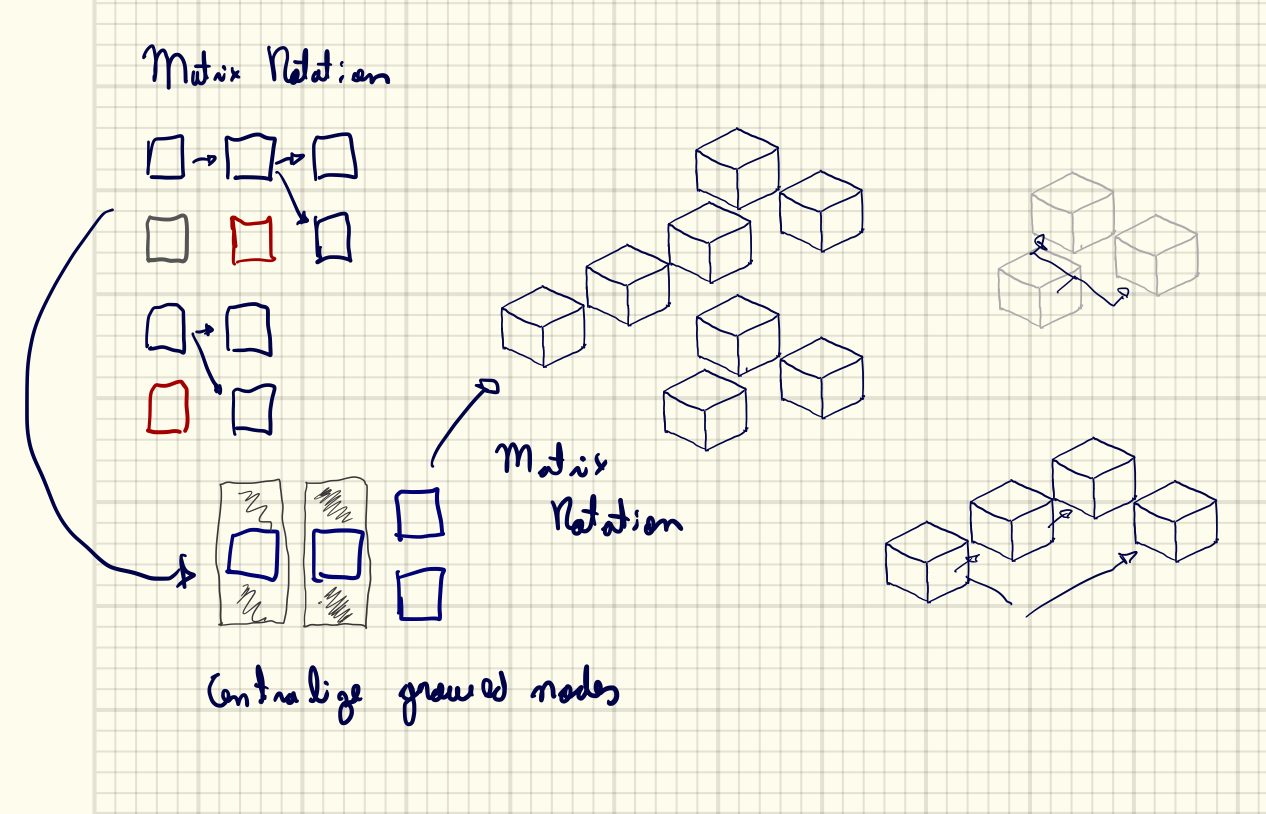 Matrix Rotation
Matrix
Rotation
Centralize groued nodes